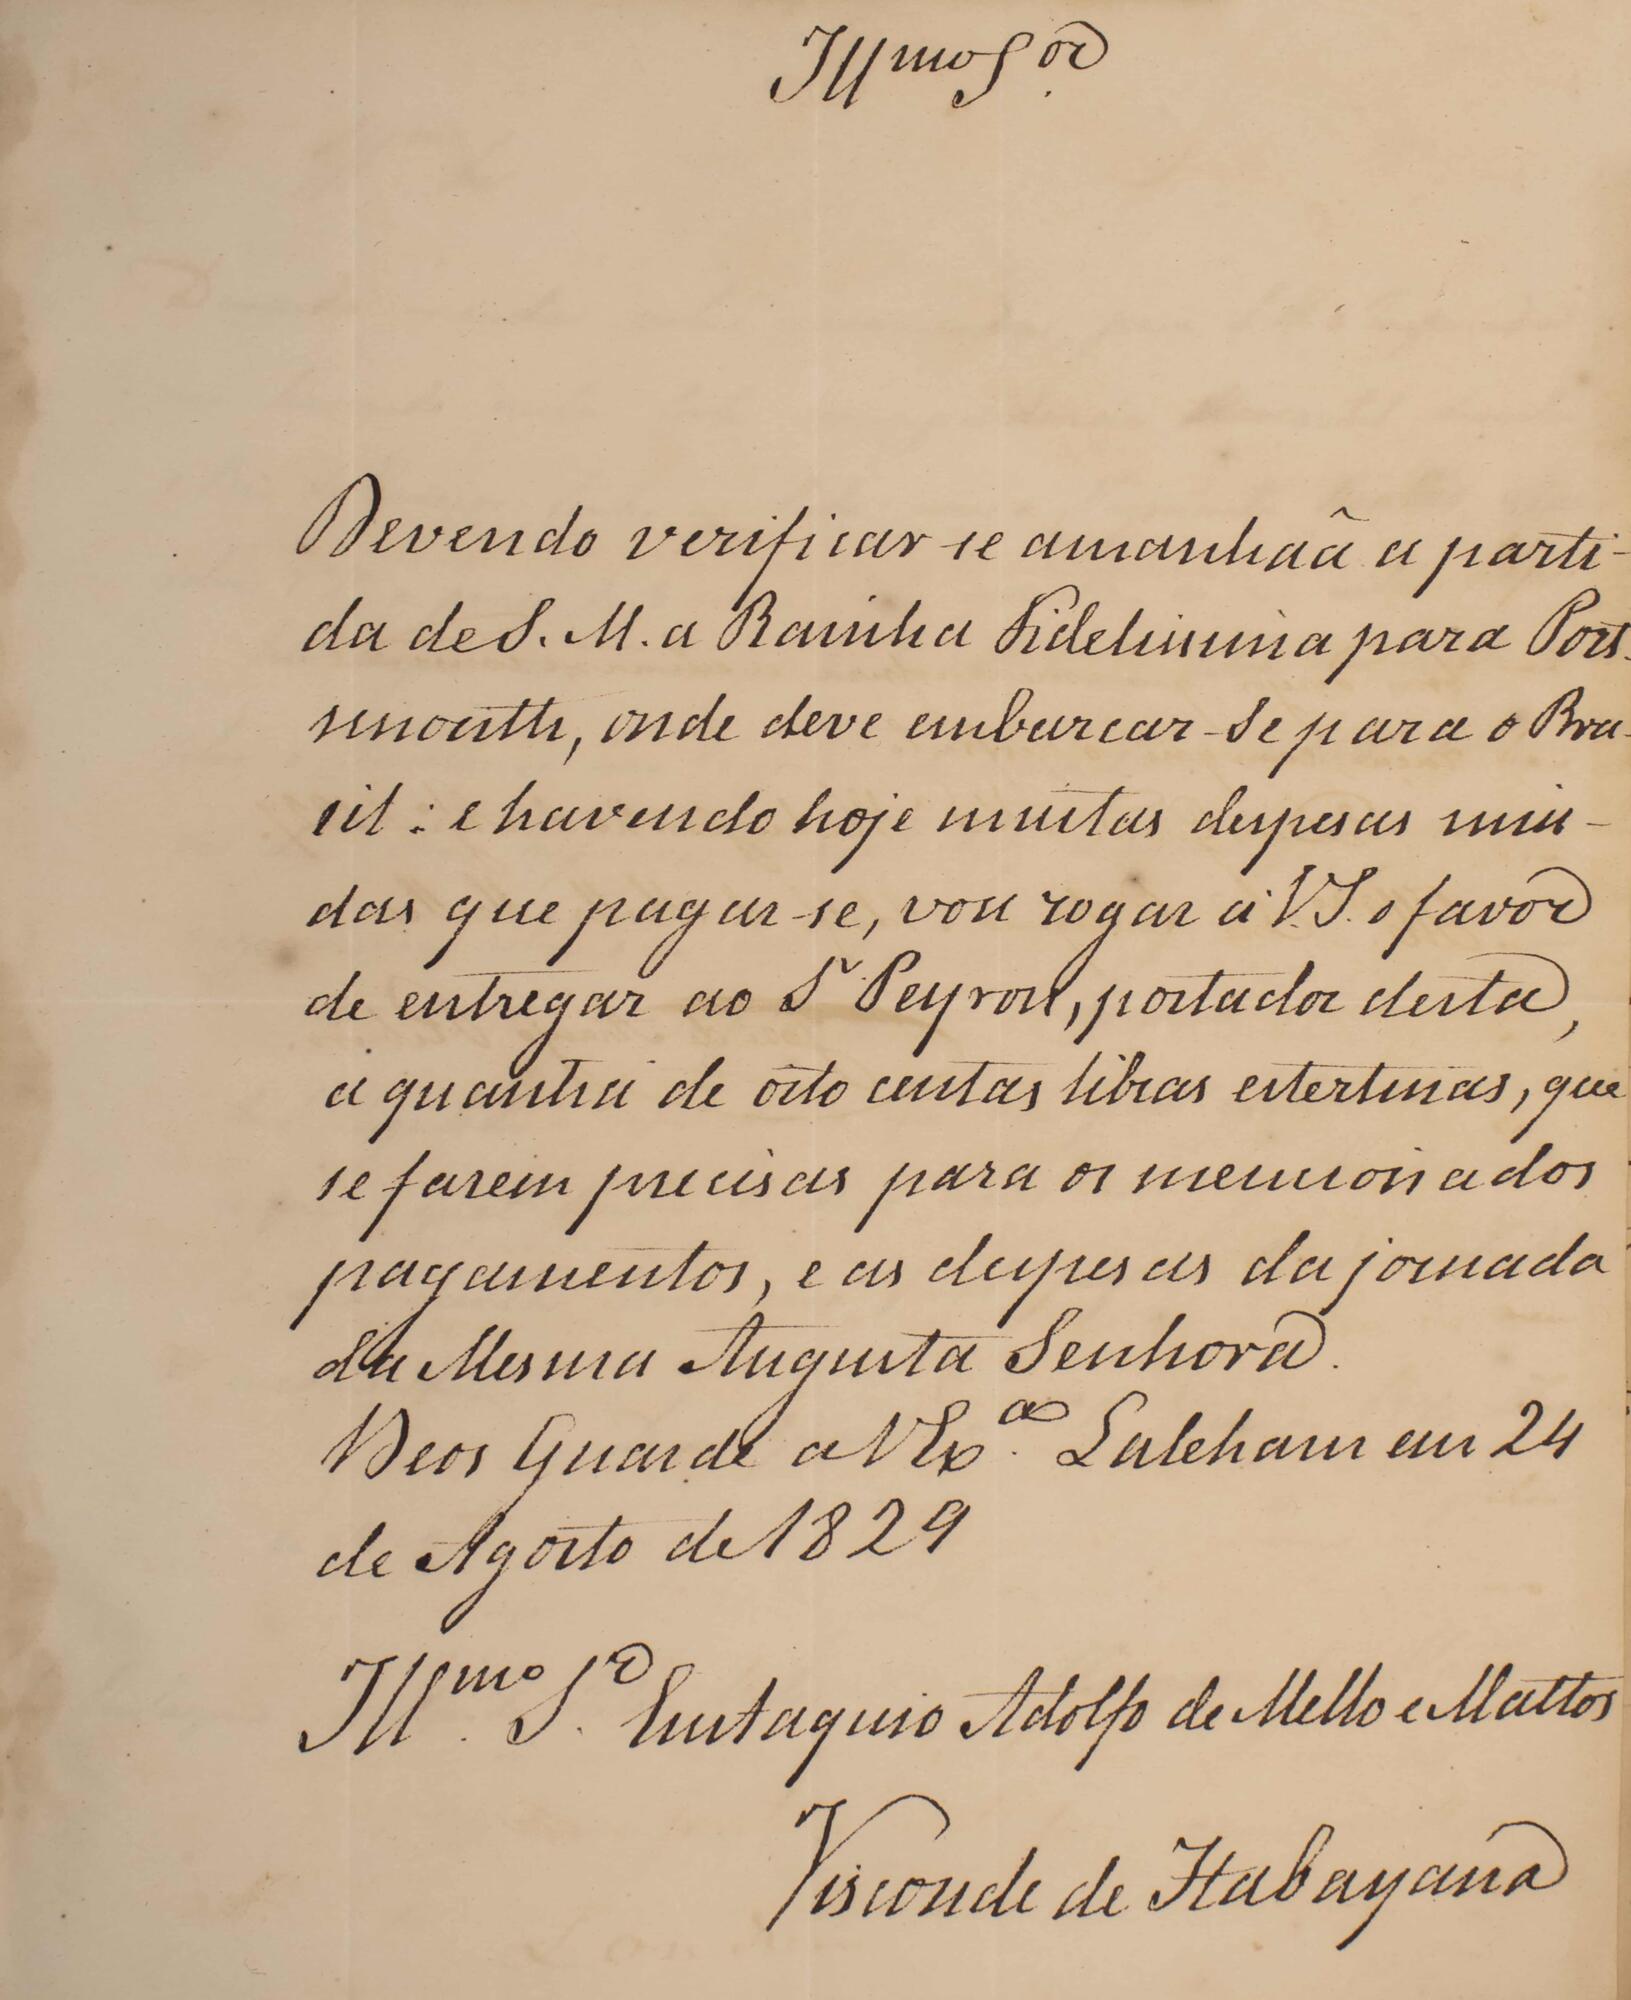 Illmo Sor.
Devendo verificar-se amanhaã a parti-
da de S. M. a Rainha Fidelissima para Ports-
mouth, onde deve embarcar-se para o Bra-
sil: e havendo hoje muitas despesas miu-
das que pagar-se, vou rogar á V.S. o favor
de entregar ao Sr Peyron, portador desta,
a quantia de oito centas libras esterlinas, que
se fazem precisas para os mencionados
pagamentos, e as despesas da jornada
da Mesma Augusta Senhora.
Deos Guarde a V Exa. Laleham em 24
de Agosto de 1829
Illmo. Sr. Eustaquio Adolfo de Mello e Mattos
Visconde de Itabayana